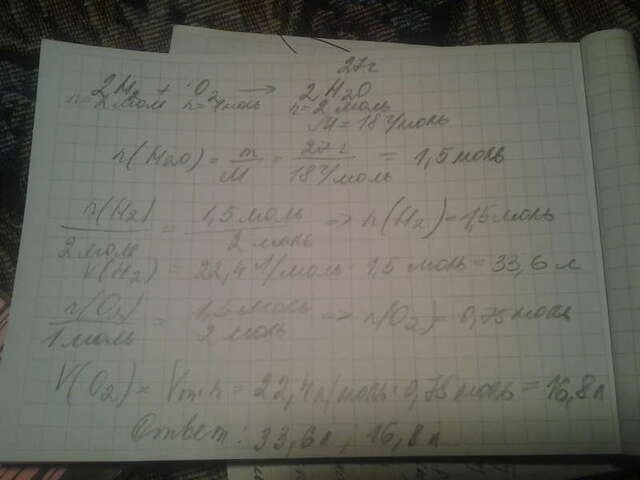 27 г
2H2 + O2 → 2H2O
n=2моль n=1моль n=2 моль
M=18 г/моль
n(H2O) = m/M = 27 г/18 г/моль = 1,5 моль
n(H2)/2 моль = 1,5 моль/2 моль => n(H2)=1,5 моль
V(H2) = 22,4 л/моль · 1,5 моль = 33,6 л
n(O2)/1 моль = 1,5 моль/2 моль => n(O2)= 0,75 моль
V(O2) = Vm·n = 22,4 л/моль · 0,75 моль = 16,8 л
Ответ: 33,6 л ; 16,8 л